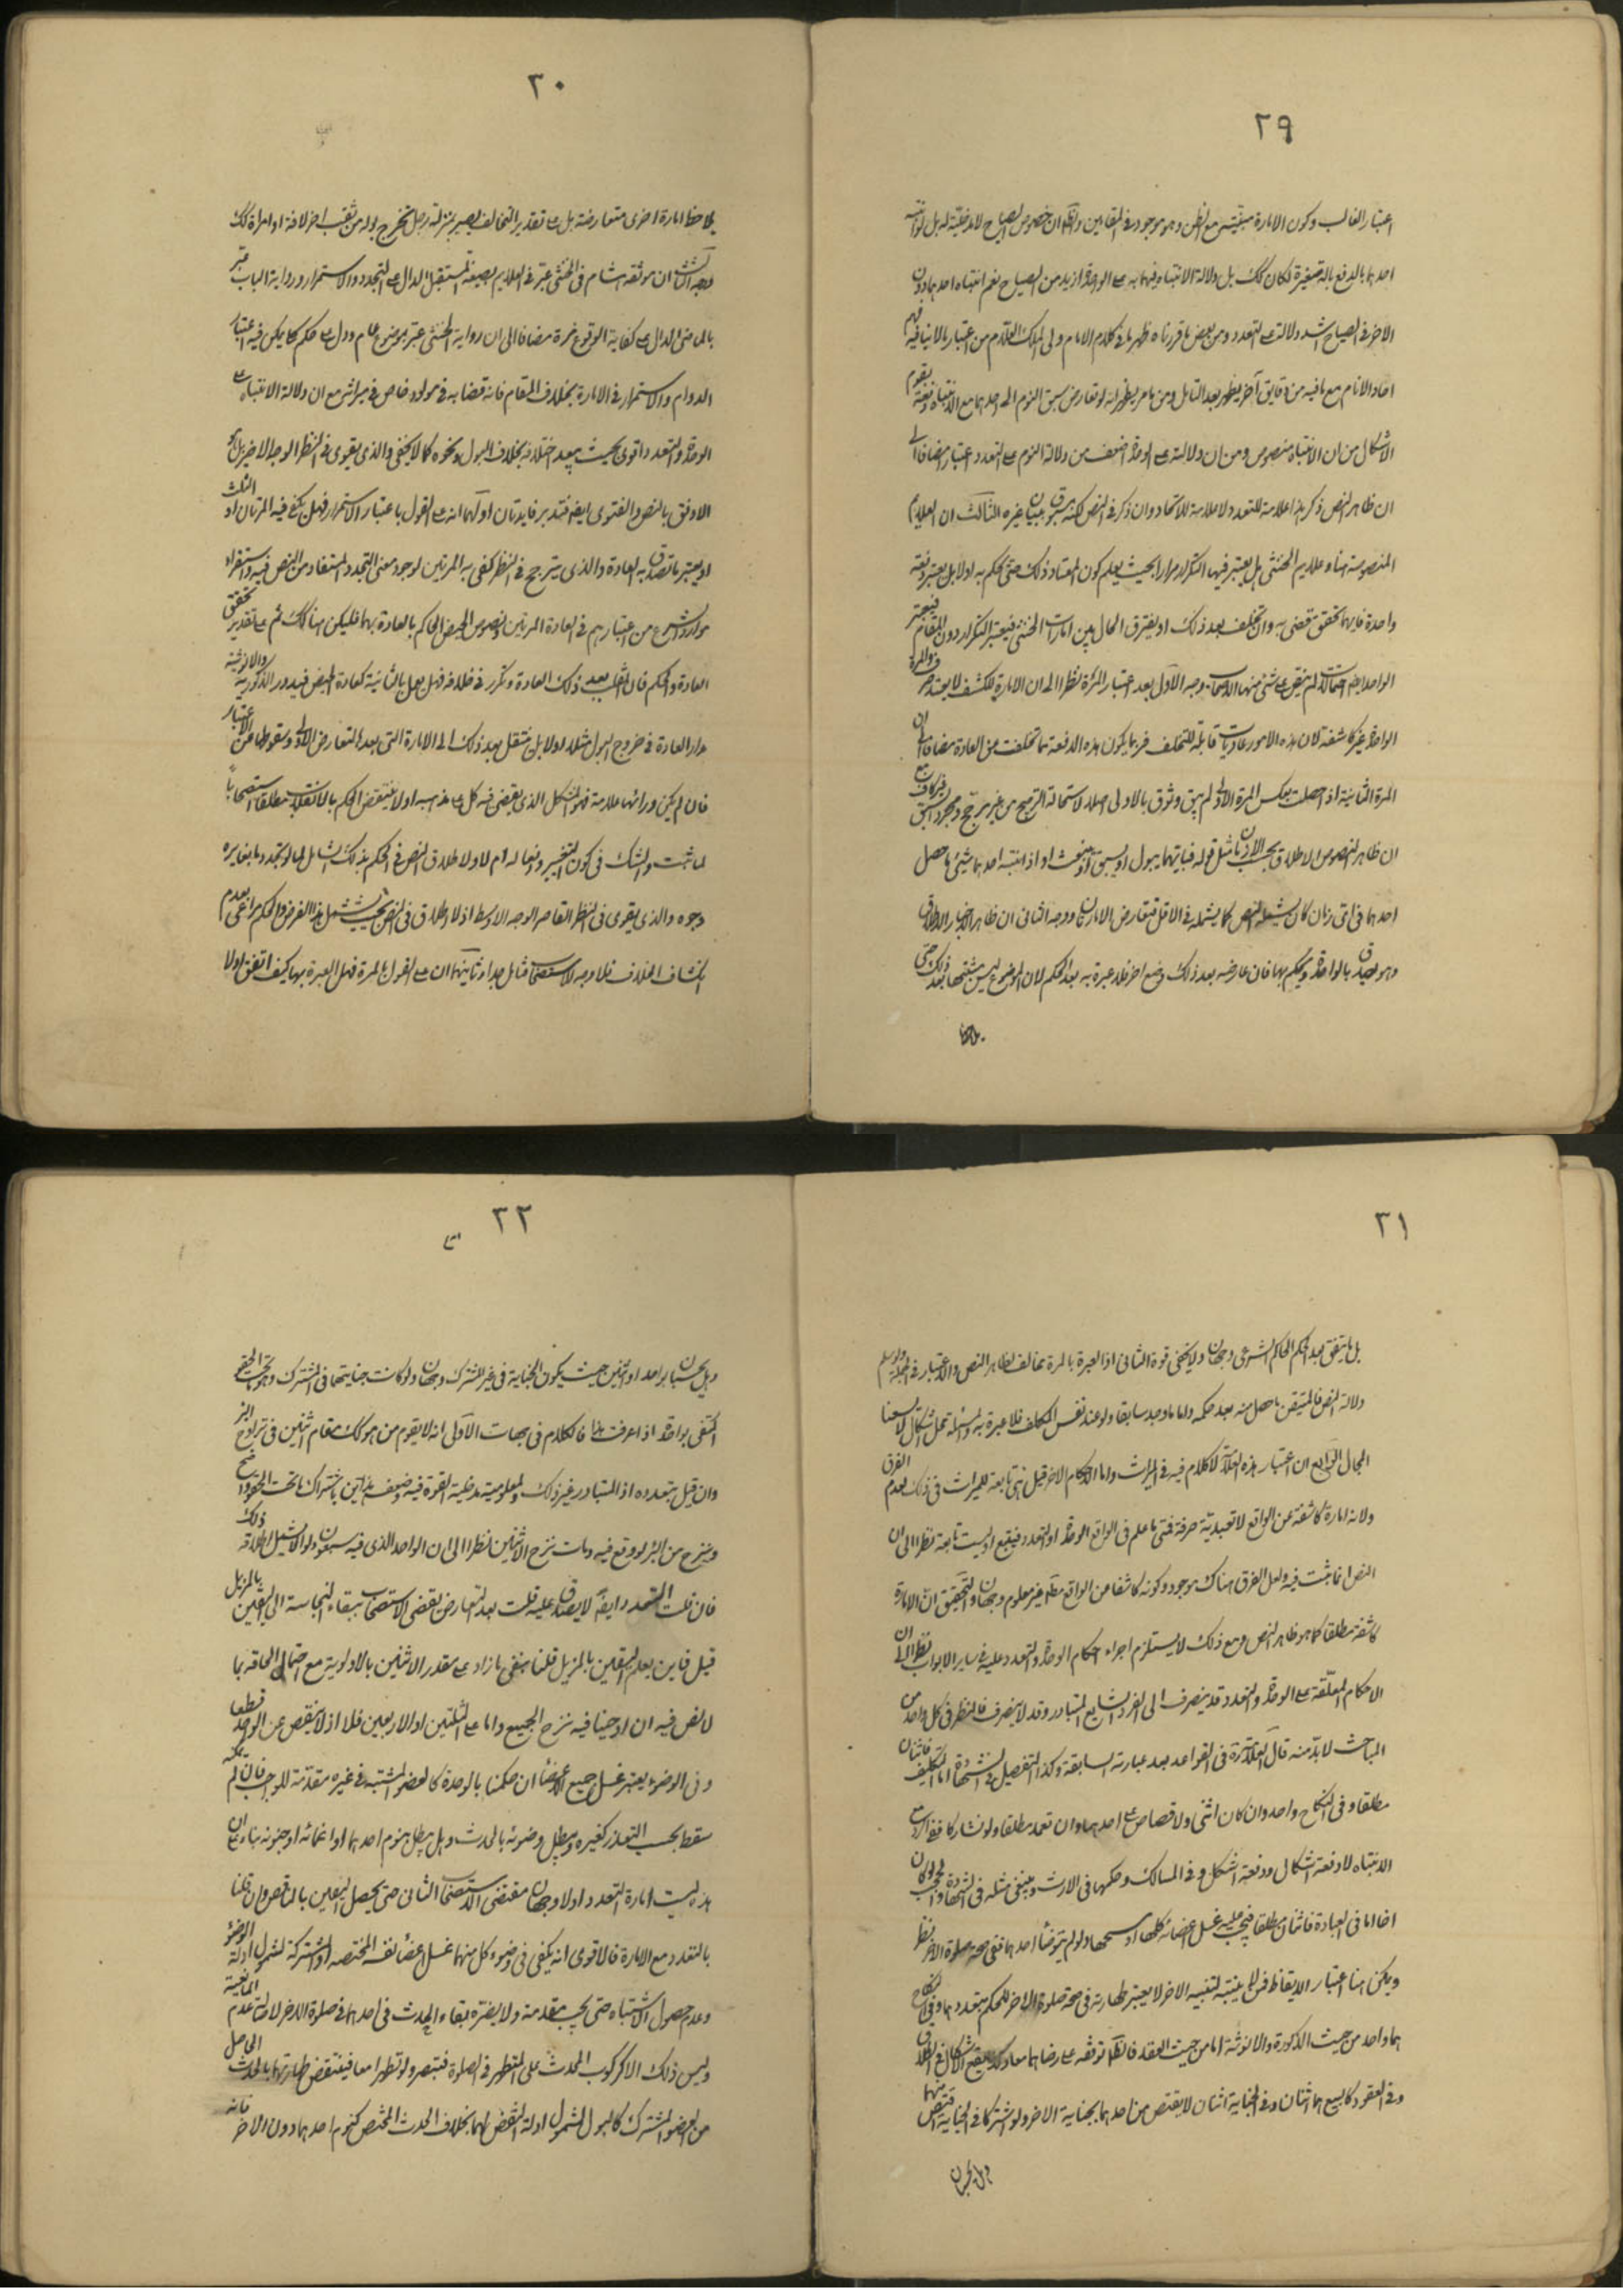 ٢٩
اعتبار الغالب وكون الامارة مع الظن وهو موجود في المقامين خصوص الصياح لا مدخلية له بل
احدهما بالدفع بآلة صغيرة لكان كك بل دلالة الانتباه فيهما به على الوحدة ازيد من الصياح نعم انتباه احدهما دون
الاخر في الصياح اشد دلالة على التعدد ومن بعض ما قررناه ظهر ما في كلام الامام ولى الملك العلام من اعتبار
الانام مع ما فيه من دقايق آخر يظهر بعد التامل ومن ما مر يظهر انه لو تعارض سبق النوم الى احدهما مع الانتباه دفعة
الاشكال من ان الانتباه منصوص ومن ان دلالته على الوحدة اضعف من دلالة النوم على التعدد اعتبارا مضافا الى
ان ظاهر النص ذكر هذا علامة للتعدد لا علامة للاتحاد وان ذكر في النص لكنه غيره الثالث ان العلايم
المنصوصة هنا وعلايم الخنثى هل يعتبر فيها التكرار مرارا بحيث يعلم كون المعتاد ذلك حتى يحكم به اولا بل يعتبر دفعة
واحدة فايهما تحقق يقضى به وان تخلف بعد ذلك او يفترق الحال بين امارات الخنثى فيعتبر التكرار دون المقام فيعتبر
الواحد ايضا على شئ منها الاصحاب وجه الاول بعد اعتبار المرة نظرا الى ان الامارة للكشف
الواحدة غير كاشفة لان هذه الامور عاديات قابلة للتخلف فربما يكون هذه الدفعة مما تخلفت من العادة مضافا الى ان
المرة الثانية اذا حصلت بعكس المرة الاولى لم يبق وثوق بالاولى اصلا لاستحالة الترجيح من غير مرجح ومجرد السبق غير كاف مع
ان ظاهر النصوص الاطلاق بحسب الازمان مثل قوله فبايهما يبول او يسبق او ينبعث او اذا انتبه احدهما شئ ما حصل
احدهما في اى زمان كان يشمله النص كما يشمله في الاول فيتعارض الامارتان ووجه الثانى ان ظاهر الاخبار الاطلاق
وهو يصدق بالواحدة ويحكم بها فان عارضه بعد ذلك وضع اخر فلا عبرة به بعد الحكم لان الموضوع ليس مشتبها بعد ذلك حتى
يلاحظ
٣٠
يلاحظ امارة اخرى متعارضة بل على تقدير التخالف يصير بمنزلة رجل يخرج بوله من ثقب اخر لافة او امراة كك
وجه الثالث ان موثقة هشام في الخنثى عبر في العلايم بصيغة المستقبل الدال على التجدد والاستمرار ورواية الباب عبر
بالماضى الدال على كفاية الوقوع مرة مضافا الى ان رواية الخنثى عبر بموضوع عام ودل على حكم كلى يمكن فيه اعتبار
الدوام والاستمرار في الامارة بخلاف المقام فانه قضا به في مولود خاص في ميراث مع ان دلالة الانتباه على
الوحدة والتعدد اقوى بحيث يبعد اختلافه بخلاف البول ونحوه كما لا يخفى والذى يقوى في النظر الوجه الاخير بل هو
الاوفق بالنص والفتوى ايضا فتدبر فايدتان اولهما انه على القول باعتبار الاستمرار فهل يكفى فيه المرتان او الثلث
او يعتبر ما تصدق به العادة والذى يترجح في النظر كفى به المرتين لوجود معنى التجدد المستفاد من النص فيه واستقراء
موارد الشرع من اعتبارهم في العادة المرتين ونصوص الحيض الحاكم بالعادة بهما فليكن هنا كك ثم على تقدير تحقق
العادة والحكم فان انقلب بعد ذلك العادة وتكرر في خلافه فهل يعمل بالثانية كعادة الحيض فيدور الذكورية والانوثية
مدار العادة في خروج البول مثلا اولا بل ينتقل بعد ذلك الى الامارة التى بعدها لتعارض الاولى وسقوطها من الاعتبار
فان لم يكن ورائها علامة فهو المشكل الذى يقضى فيه كل على مذهبه اولا ينتقض الحكم بالانقلاب مطلقا استصحابا
لما ثبت والشك في كون التغيير رافعا له ام لا ولاطلاق النص في الحكم بذلك الشامل لما لو تجدد ما يغايره
وجوه والذى يقوى في النظر القاصر الوجه الاوسط اذ لا اطلاق في النص بحيث يشتمل هذا الفرض والحكم مراعى بعدم
انكشاف الخلاف فلا وجه للاستصحاب فتامل جدا وثانيهما ان على القول بالمرة فهل العبرة بها كيف اتفق اولا
٣١
بل ما يتفق عند الحاكم الشرعى وجهان ولا يخفى قوة الثانى اذ العبرة بالمرة مخالف لظاهر النص والاعتبار في الجملة ولو سلم
دلالة النص فالمتيقن ما حصل منه بعد حكمه واما ما وجد سابقا ولو عند نفس المكلف فلا عبرة به والمسئلة محل اشكال لا يسعنا
المجال الرابع ان اعتبار هذه العلامة لا كلام فيه في الميراث واما الاحكام الاخر قيل هى تابعة للميراث في ذلك لعدم الفرق
ولانه امارة كاشفة عن الواقع لا تعبدية صرفة فمتى ما علم في الواقع الوحدة او التعدد فيتبع او ليست تابعة نظرا الى ان
النص انما ثبت فيه ولعل الفرق هناك موجود وكونه كاشفا من الواقع مطلقا غير معلوم وجهان والتحقيق ان الامارة
كاشفة مطلقا كما هو ظاهر النص ومع ذلك لا يستلزم اجراء احكام الوحدة والتعدد عليه في ساير الابواب نظرا الى ان
الاحكام المعلقة على الوحدة والتعدد قد ينصرف الى الفرد الشايع المتبادر وقد لا ينصرف فالنظر في كل واحد من
المباحث لا بد منه قال العلامة ره في القواعد بعد عبارته السابقة وكذا التفصيل في الشهادة اما التكليف فاثنان
مطلقا وفي النكاح واحد وان كان انثى ولا قصاص على احدهما وان تعمد مطلقا ولو تشاركا ففى الرد مع
الانتباه لا دفعة اشكال ودفعة اشكل وفي المسالك وحكمها في الارث وينبغى مثله في الشهادة والحجب لو كان
اخا اما في العبادة فاثنان مطلقا فيجب عليه غسل اعضائه كلها او مسحها ولو لم يتوضأ احدهما ففى صحة صلوة الاخر نظر
ويمكن هنا اعتبار الايقاظ فان لم ينتبه لتنبيه الاخر لا يعتبر طهارته في صحة صلوة الاخر للحكم بتعددهما وفي النكاح
هما واحد من حيث الذكورة والانوثة اما من حيث العقد فالظاهر توقفه على رضاهما معا ويقع الاشكال في الطلاق
وفي العقود كالبيع هما اثنان وفي الجناية اثنان لا يقتص من احدهما بجناية الاخر ولو اشتركا في الجناية اقتص منهما
وهل يحسبان
٣٢
وهل يحسبان بواحد او اثنين حيث يكون الجناية في غير المشترك وجهان ولو كانت جنايتهما في المشترك
اكتفى بواحد اذا عرفت هذا فالكلام في جهات الاولى انه لا يقوم من هو كك مقام اثنين في تراوح البئر
وان قيل بتعدده اذ المتبادر غير ذلك ولمعلومية مدخلية القوة فيه وضعف هذين باشتراك ما تحت الحقو واضح
وينزح من البئر لو وقع فيه ومات نزح الاثنين نظرا الى ان الواحد الذى فيه سبعون دلوا لا يشمل اطلاقه ذلك
فان قلت التعدد ايضا لا يصدق عليه قلت بعد التعارض يقضى الاستصحاب ببقاء النجاسة الى اليقين بالمزيل
قيل فاين يعلم اليقين بالمزيل قلنا ينفى ما زاد على مقدر الاثنين بالاولوية مع احتمال الحاقه بما
لا نص فيه ان اوجبنا فيه نزح الجميع واما على الثلثين او الاربعين فلا اذ لا ينقص عن الواحد قطعا
وفي الوضوء يعتبر غسل جميع الاعضاء ان حكمنا بالوحدة كالعضو المشتبه في غيره مقدمة للواجب فان لم يمكنه
سقط بحسب التعذر كغيره ويبطل وضوئه بالحدث وهل يبطل بنوم احدهما او اغمائه او جنونه بناء على ان
هذه ليست امارة التعدد اولا وجهان مقتضى الاستصحاب الثانى حتى يحصل اليقين بالناقض وان قلنا
بالتعدد مع الامارة فالاقوى انه يكفى في وضوء كل منهما غسل اعضاء نفسه المختصة او المشتركة لشمول ادلة الوضوء
وعدم حصول الاشتباه حتى يجب مقدمة ولا يضره بقاء الحدث في احدهما في صلوة الاخر لعدم المانعية
وليس ذلك الا كركوب المحدث على المتطهر في الصلوة فتبصر ولو تطهرا معا فينتقض طهارتهما بالحدث الحاصل
من العضو المشترك كالبول لشمول ادلة النقض لهما بخلاف الحدث المختص كنوم احدهما دون الاخر فانه